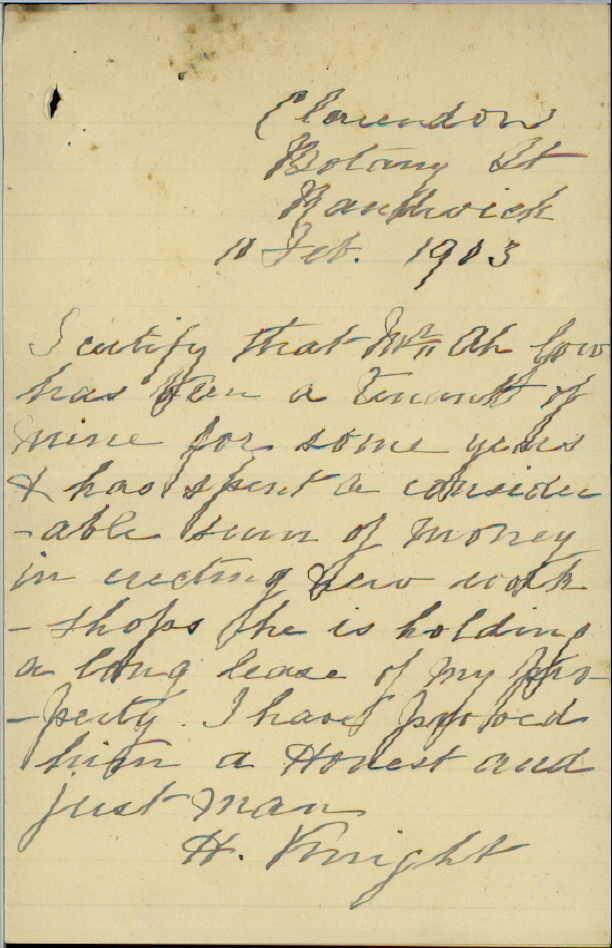 Clarendon
Botany St
Randwick
11 Feb. 1903
I certify that Mr Ah Gow
has been a Tenant of
mine for some years
& has spent a consider
-able sum of money
in erecting new work
-shops he is holding
a long lease of my pro-
-perty. I have proved
him a Honest and
just man
H. Knight